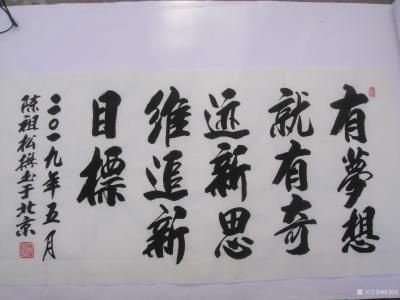 有夢想
就有奇
迹新思
維追新
目標
二〇一九年五月
陈祖松撰书于北京